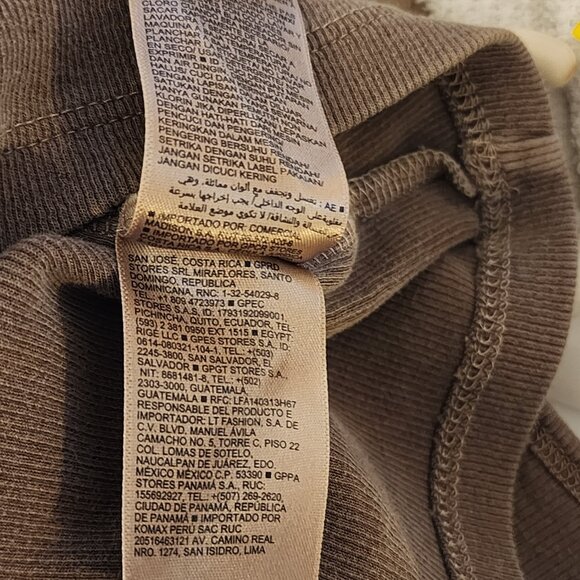 CLORO
SACAR EL
LAVADORA
MAQUINA
PLANCHAR
PLANCHAR
EN SECO/ US
EXPRIMIR ■ ID
DAN AIR
DENGAN CUCI DA
HANYA GUNAKAN
CLORIN JIKA PERLU
DENGAN HATI-HATI DA
PENCUCI/ PENGERING/
PENGERING BERSUHU
SETRIKA DENGAN SUHU
JANGAN SETRIKA LABEL PAKAIAN/
JANGAN DICUCI KERING
■ AE: تغسل وتجفف مع ألوان مماثلة. وهي
مقلوبة على الوجه الداخلي/ يجب إخراجها بسرعة
لا تكوى موضع العلامة
■ IMPORTADO POR COMERCIAL
MADISON S.A.
■ IMPORTADO POR
SAN JOSÉ, COSTA RICA ■ GPRD
STORES SRL MIRAFLORES, SANTO
DOMINGO, REPUBLICA
DOMINICANA, RNC: 1-32-54029-8
TEL.: +1 809 4723973 ■ GPEC
STORES S.A.S, ID: 1793192099001,
PICHINCHA, QUITO, ECUADOR, TEL:
(593) 2 381 0950 EXT 1515 ■ EGYPT:
RIGE LLC ■ GPES STORES S.A. ID:
0614-080321-104-1, TEL.: +(503)
2245-3880, SAN SALVADOR, El
SALVADOR ■ GPGT STORES S.A.
NIT: 8681481-8, TEL.: +(502)
2303-3000, GUATEMALA,
GUATEMALA ■ RFC: LFA140313H67
RESPONSABLE DEL PRODUCTO E
IMPORTADOR: LT FASHION, S.A. DE
C.V. BLVD. MANUEL ÁVILA
CAMACHO NO. 5, TORRE C, PISO 22
COL. LOMAS DE SOTELO,
NAUCALPAN DE JUÁREZ, EDO.
MÉXICO MÉXICO C.P. 53390 ■ GPPA
STORES PANAMÁ S.A., RUC:
155692927, TEL.: +(507) 269-2620,
CIUDAD DE PANAMÁ, REPÚBLICA
DE PANAMÁ ■ IMPORTADO POR
KOMAX PERÚ SAC RUC
20516463121 AV. CAMINO REAL
NRO. 1274, SAN ISIDRO, LIMA